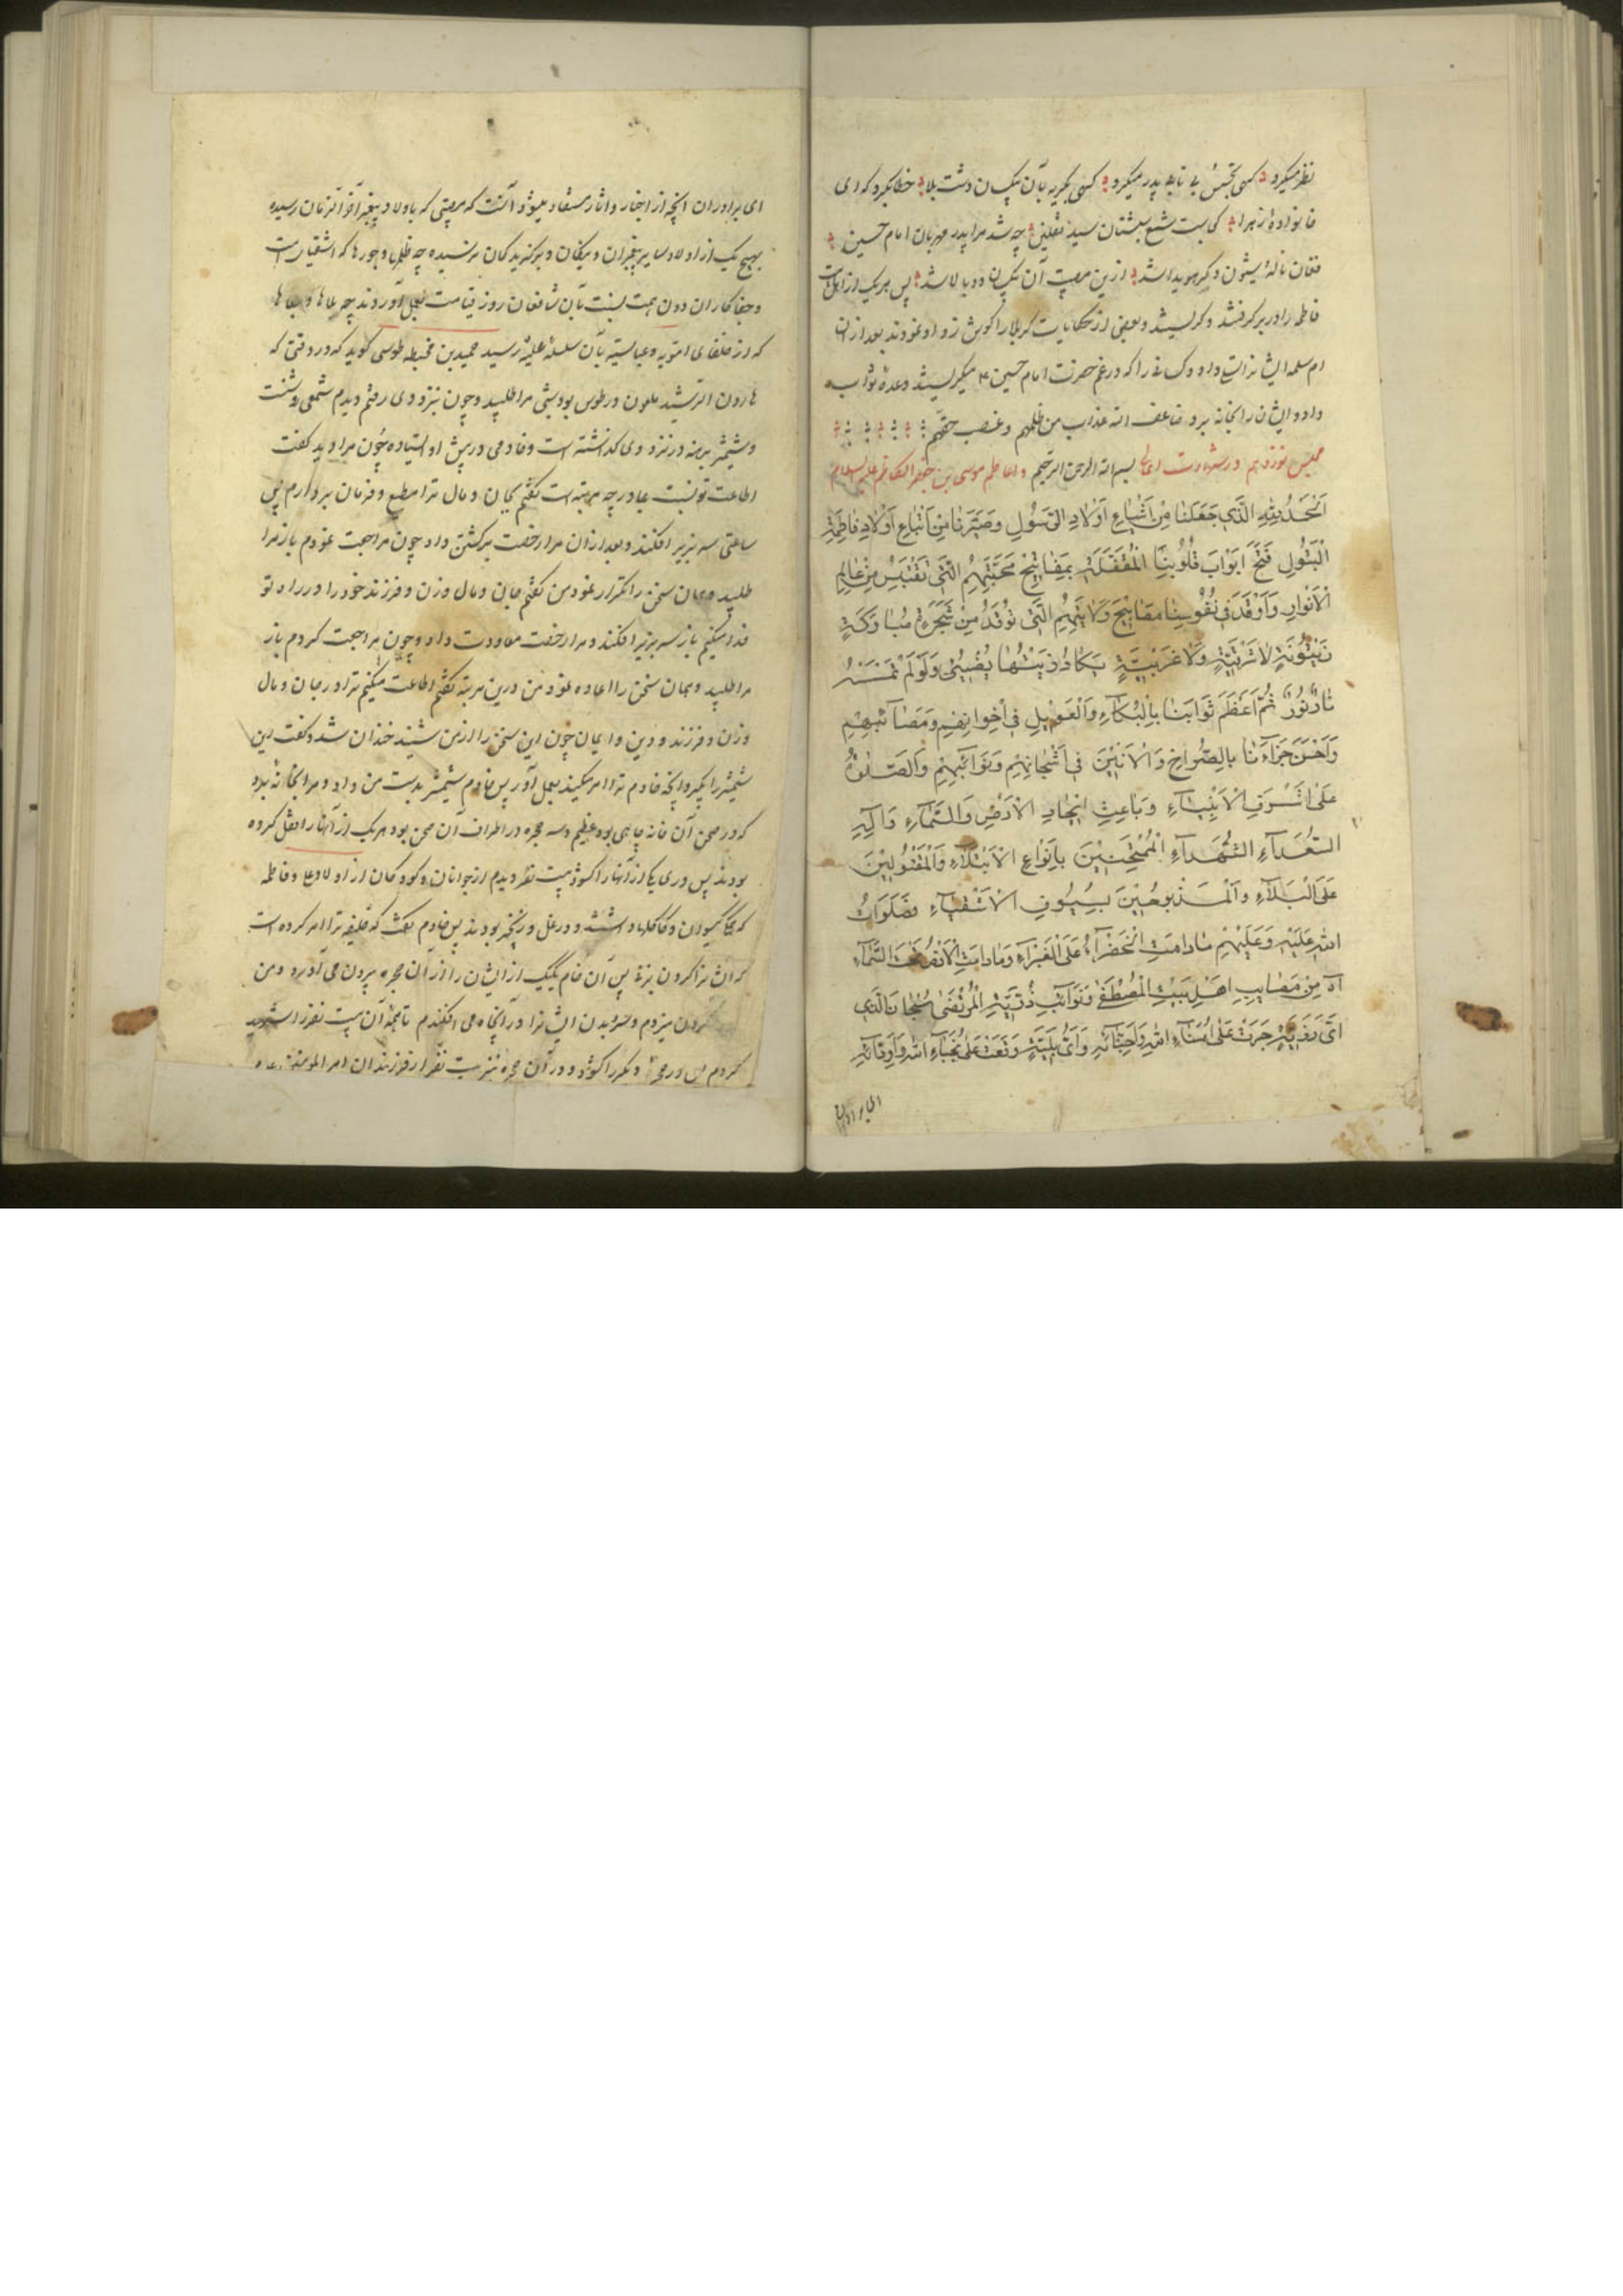 نظر میکرد کهی تجسس بی تابه پدر میکرد کهی کریه بآن پیکسان دشت بلا خطاب میکرد که ای
خانواده زهرا کی ست شمع شبستان سید ثقلین چه شد مرا پدر مهربان امام حسین
فغان ناله ایشون دکر هویدا شد ازین مصیبت آن بیکسان دوبالا شد پس هر یک از اهل بیت
فاطمه را در بر کرفتند و کریستند و بعضی از حکایات کربلا را کوش زد او نمودند بعد از ان
ام سلمه ایشانرا تسلی داد و کسانی را که در غم حضرت امام حسین ع میکریستند وعده ثواب
داد و ایشان را بخانه برد ضاعف الله عذاب من ظلمهم و غصب حقهم
مجلس نوزدهم در شهادت امام بسم الله الرحمن الرحیم واعاظم موسی بن جعفر الکاظم علیه السلام
اَلْحَمْدُ لِلّهِ الَّذی جَعَلَنا مِنْ اَشْیاعِ اَوْلادِ الرَّسُولِ وَصَیَّرَنا مِنْ اَتْباعِ اَوْلادِ فاطِمَةِ
الْبَتُولِ فَتَحَ اَبْوابَ قُلُوبِنَا الْمُقَفَّلَةِ بِمَفاتیحِ مَحَبَّتِهِمُ الَّتی تَقْتَبِسُ مِنْ عالَمِ
الْاَنْوارِ وَاَوْقَدَ فی نُفُوسِنا مَصابیحَ وَلایَتِهِمُ الَّتی تُوقَدُ مِنْ شَجَرَةٍ مُبارَکَةٍ
زَیْتُونَةٍ لا شَرْقِیَّةٍ وَلا غَرْبِیَّةٍ یَکادُ زَیْتُها یُضیئُ وَلَوْ لَمْ تَمْسَسْهُ
نارٌ نُورٌ ثُمَّ اَعْظَمَ ثَوابَنا بِالْبُکاءِ وَالْعَویلِ فی اَحْزانِهِمْ وَمَصائِبِهِمْ
وَاَحْسَنَ جَزاءَنا بِالصُّراخِ وَالْاَنینَ فی اَشْجانِهِمْ وَنَوائِبِهِمْ وَالصَّلوةُ
عَلی اَشْرَفِ الْاَنْبِیاءِ وَباعِثِ ایجادِ الْاَرْضِ وَالسَّماءِ وَآلِهِ
السُّعَداءِ الشُّهَداءِ الْمُمْتَحَنینَ بِاَنْواعِ الْاِبْتِلاءِ وَالْمَقْتُولینَ
عَلَی الْبَلاءِ وَالْمَذْبُوحینَ بِسُیُوفِ الْاَشْقِیاءِ فَصَلَواتُ
اللهِ عَلَیْهِ وَعَلَیْهِمْ مادامَتِ الْخَضْراءُ عَلَی الْغَبْراءِ وَمادامَتِ الْاَرْضُ تَحْتَ السَّماءِ
آه مِنْ مَصایِبِ اَهْلِ بَیْتِ الْمُصْطَفی وَنَوائِبِ ذُرِّیَّةِ الْمُرْتَضی سُبْحانَ الَّذی
اَیَّ رَزِیَّةٍ جَرَتْ عَلی اُمَناءِ اللهِ وَاَحِبّائِهِ وَاَیُّ بَلِیَّةٍ وَقَعَتْ عَلی نُجَباءِ اللهِ وَاَوِدّائِهِ
ای برادران
ای برادران آنچه از اخبار و اثار مستفاد میشود آنست که مصیبتی که باولاد پیغمبر آخر الزمان رسیده
بهیچ یک از اولاد سایر پیغمبران و نیکان و برکزیدکان نرسیده چه ظلمها و جورها که اشقیای امت
و جفاکاران دون همت نسبت بآن شافعان روز قیامت بعمل آوردند چه بلاها و جفاها
که از خلفای امویه و عباسیه بآن سلسله علیه رسید حمید بن قحطبه طوسی کوید که در وقتی که
هارون الرشید ملعون در طوس بود شبی مرا طلبید و چون نزد وی رفتم دیدم شمعی روشنست
و شمشیر برهنه در نزد وی کذاشته است و خادمی در پیش او ایستاده چون مرا دید کفت
اطاعت تو نسبت بما در چه مرتبه است کفتم بجان و مال ترا مطیع و فرمان بردارم پس
ساعتی سر بزیر افکند و بعد از ان مرا رخصت برکشتن داد چون مراجعت نمودم باز مرا
طلبید و همان سخن را تکرار نمود من کفتم جان و مال و زن و فرزند خود را در راه تو
فدا میکنم باز سر بزیر افکند و مرا رخصت معاودت داد و چون مراجعت کردم باز
مرا طلبید و همان سخن را اعاده نمود من درین مرتبه کفتم اطاعت میکنم ترا در جان و مال
و زن و فرزند و دین و ایمان چون این سخن را از من شنید خندان شد و کفت این
شمشیر را بکیر و آنچه خادم ترا امر میکند بعمل آور پس خادم شمشیر بدست من داد و مرا بخانه برد
که در صحن آن خانه چاهی بود عظیم و سه حجره در اطراف آن صحن بود هر یک از آنها را قفل کرده
بودند پس در یکی از آنها را کشود بیست نفر دیدم از جوانان و کودکان از اولاد علی و فاطمه
که همه کیسوان و کاکلها داشتند و در غل و زنجیر بودند پس خادم کفت که خلیفه ترا امر کرده است
که ایشانرا کردن بزنی پس آن خادم یک یک از ایشان را از آن حجره بیرون می آورد و من
کردن میزدم و سر و بدن ایشانرا در آنچاه می افکندم تا همه آن بیست نفر را شهید
کردم پس در حجره دیکر را کشود و در آن حجره نیز بیست نفر از فرزندان امیر المومنین